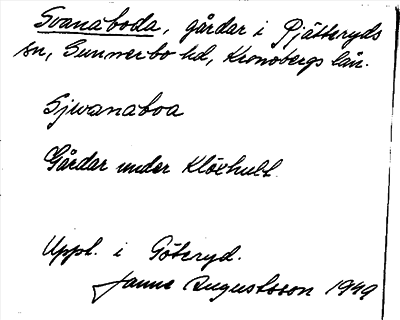 Svanaboda, gårdar i Pjätteryds
sn, Sunnerbo hd, Kronobergs län.
Sjwanaboa
Gårdar under Klöxhult.
Uppl. i Göteryd.
Janne Augustsson 1949